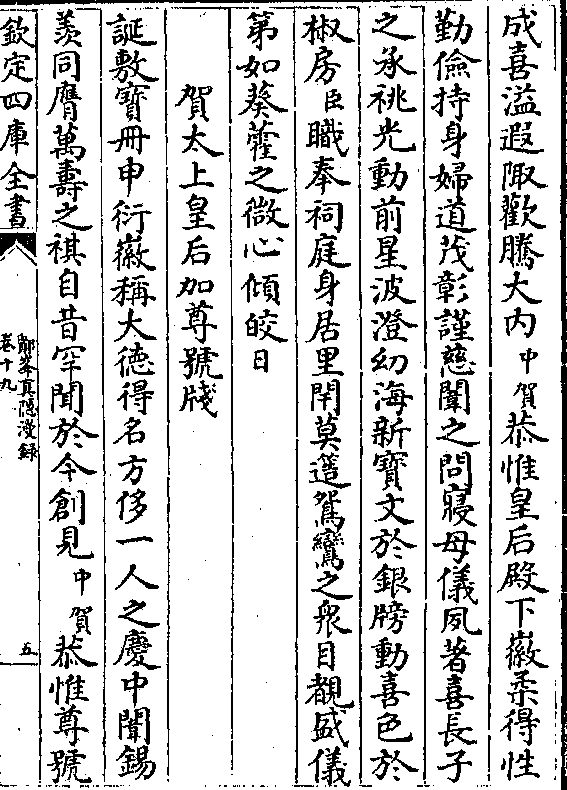 成喜溢遐陬歡騰大内中賀恭惟皇后殿下徽柔得性
勤儉持身婦道茂彰謹慈闈之問寢母儀夙著喜長子
之承祧光動前星波澄幼海新寶文於銀牓動喜色於
椒房臣職奉祠庭身居里閈莫遵鴛鸞之衆目覩盛儀
第如葵藿之微心傾皎日
賀太上皇后加尊號牋
誕敷寶冊申衍徽稱大徳得名方侈一人之慶中闈錫
羡同膺萬壽之祺自昔罕聞於今創見中賀恭惟尊號
欽定四庫全書
鄮峯真隠漫録
卷十九
五